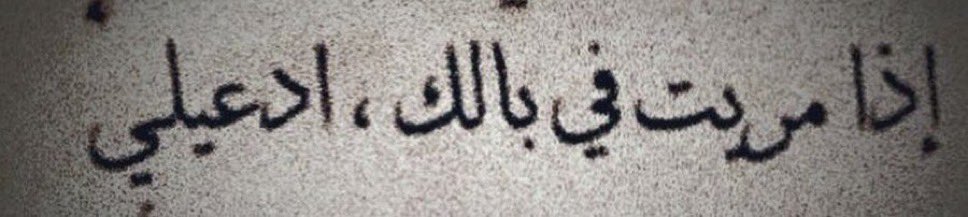 إذا مريت في بالك ، ادعيلي